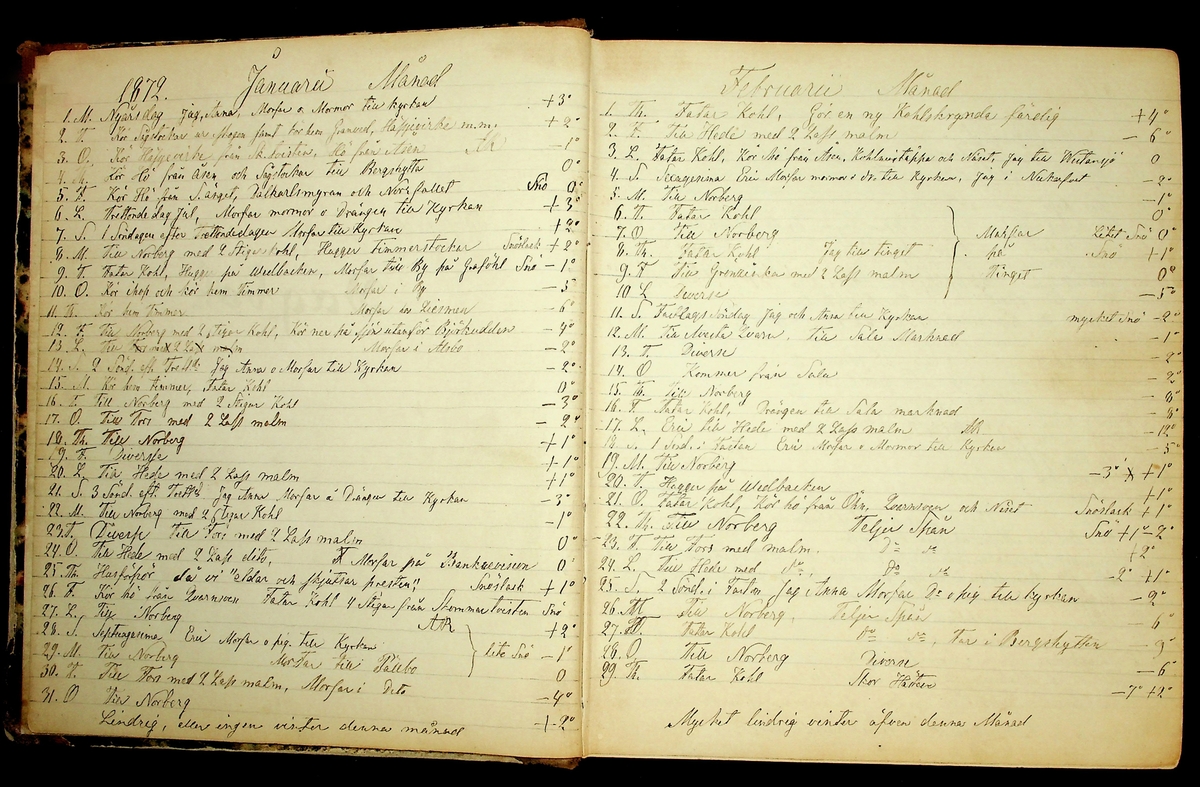 1872. Januarii Månad
1. M. Nyårsdag Jag, Anna, Morfar o. Mormor till kyrkan +3°
2. T. Kör Sågstockar ur skogen samt kör hem Granved, m.m. +2°
3. O. Kör från Hö från Åsen AR −1°
4. Th. Kör Hö från Åsen och Sågstockar till Bergshytta 0°
5. F. Kör Hö från S. änget, och Norsfallet Snö 0°
6. L. Trettonde dag Jul, Morfar mormor o Drängen till Kyrkan +3°
7. S. 1 Söndagen efter Trettondedagen Morfar till Kyrkan +2°
8. M. Till Norberg med 2 Stigar Kohl, Hugger timmerstockar Snöslask +2°
9. T. Fatar Kohl, Hugger på Wedbacken, Morfar till By på Graföhl Snö −1°
10. O. Kör ihop och kör hem timmer Morfar i By −5°
11. Th. Kör hem timmer Morfar hos −6°
12. F. Till Norberg med 2 Stigar Kohl, Kör ner på sjön utanför Björkudden −9°
13. L. Till Fors med 2 Lass malm Morfar i Alsbo −2°
14. S. 2 Sönd. eft. Trett: Jag Anna o Morfar till Kyrkan −2°
15. M. Kör hem timmer, Fatar Kohl 0°
16. T. Till Norberg med 2 Stigar Kohl −3°
17. O. Till Fors med 2 Lass malm −2°
18. Th. Till Norberg +1°
19. F. Diverse +1°
20. L. Till Hede med 2 Lass malm +1°
21. S. 3 Sönd. eft. Trett: Jag Anna Morfar o Drängen till Kyrkan −3°
22. M. Till Norberg med 2 Stigar Kohl −1°
23. T. Diverse Till Fors med 2 Lass malm 0°
24. O. Till Hede med 2 Lass dito, Morfar på Bankrevision 0°
25. Th. Husförhör då vi "eldar och skjutsar presten" Snöslask +1°
26. F. Kör hö från Qvarnsven Fatar Kohl 4 Stigar från Snö
27. L. Till Norberg AR +2°
28. S. Septuagesima Eric Morfar o pig. till Kyrkan lite Snö −1°
29. M. Till Norberg Morfar till Fällbo 0
30. T. Till Fors med 2 Lass malm, Morfar i Dito −4°
31. O Till Norberg +−2°
Lindrig, eller ingen vinter denna månad
Februarii Månad
1. Th. Fatar Kohl, Gör en ny Kohlskrinda färdig +4°
2. F. Till Hede med 2 Lass malm −6°
3. L. Fatar Kohl, Kör Hö från Åsen, och Näset, Jag till 0
4. S. Sexagesima Eric Morfar mormor o Dr. till Kyrkan, Jag i −2°
5. M. Till Norberg −1°
6. T. Fatar Kohl 0°
7. O Till Norberg Morfar Litet Snö 0°
8. Th. Fatar Kohl Jag till tinget på Snö +1°
9. F Till med 2 Lass malm Tinget 0°
10. L Diverse −5°
11. S. Fastlags Söndag Jag och Anna till Kyrkan mycket Snö −2°
12. M. Till Till Sala Marknad −1°
13. T. Diverse −2°
14. O Kommer från Sala −2°
15. Th. Till Norberg −8°
16. F. Fatar Kohl, Drängen till Sala marknad −8°
17. L. Eric till Hede med 2 Lass malm AR −12°
18. S. 1 Sönd. i Fastan Eric Morfar o Mormor till Kyrkan −5°
19. M. Till Norberg −3° +1°
20. T. Hugger på Wedbacken +1°
21. O. Fatar Kohl, Kör hö från Qvarnsven och Näset Snöslask +1°
22. Th. Till Norberg Täljer Spån Snö +1° −2°
23. F. Till Fors med malm. D:o s:n +2°
24. L. Till Hede med d:o, D:o s:n −2° +1°
25. S. 2 Sönd. i Fastan Jag Anna Morfar Dr o pig till kyrkan −2°
26. M Till Norberg, Täljer Spån −6°
27. T. Fatar Kohl d:o s:n, Far i Bergshyttan −3°
28. O. Till Norberg Diverse −6°
29. Th. Fatar Kohl Skor Hästen −7° +2°
Mycket lindrig vinter äfven denna Månad